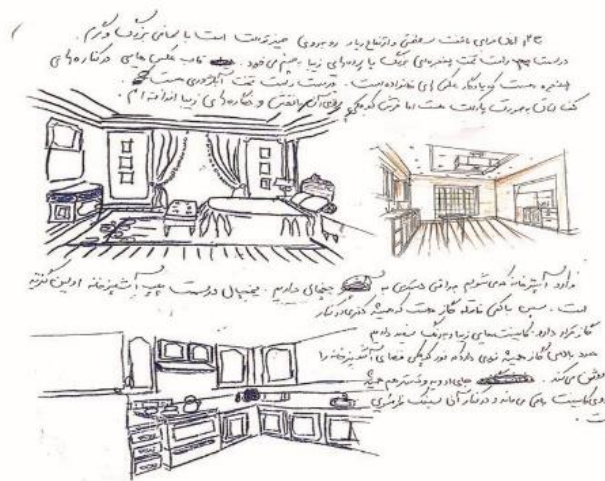 اتاق خوابی با تخت سلطنتی و ارتفاع زیاد روبروی میز توالت است با نمای بزرگ و گرم
درست سمت راست تخت پنجره‌ای بزرگ با پرده‌های زیبا به چشم می‌خورد. قاب عکس هایی در کناره‌های
پنجره هست که یادگار عکس های خانواده است. سمت راست تخت آباژوری هست
کف اتاق به صورت پارکت هست اما فرش کوچکی روی آن با نقش و نگاره‌های زیبا انداخته ام.
وارد آشپزخانه که می‌شویم به راحتی دسترسی به یخچال داریم. یخچال در سمت چپ آشپزخانه اولین گزینه
است. سپس با کمی فاصله گاز هست که همیشه کتری در کنار
گاز قرار دارد. کابینت‌هایی زیبا و به رنگ سفید دارم
هود بالای گاز همیشه نوری دارد که نور کوچکی فضای آشپزخانه را
روشن می‌کند. جای ادویه و شکر هم همیشه
روی کابینت باقی می‌ماند و در کنار آن سینک ظرفشویی
است.